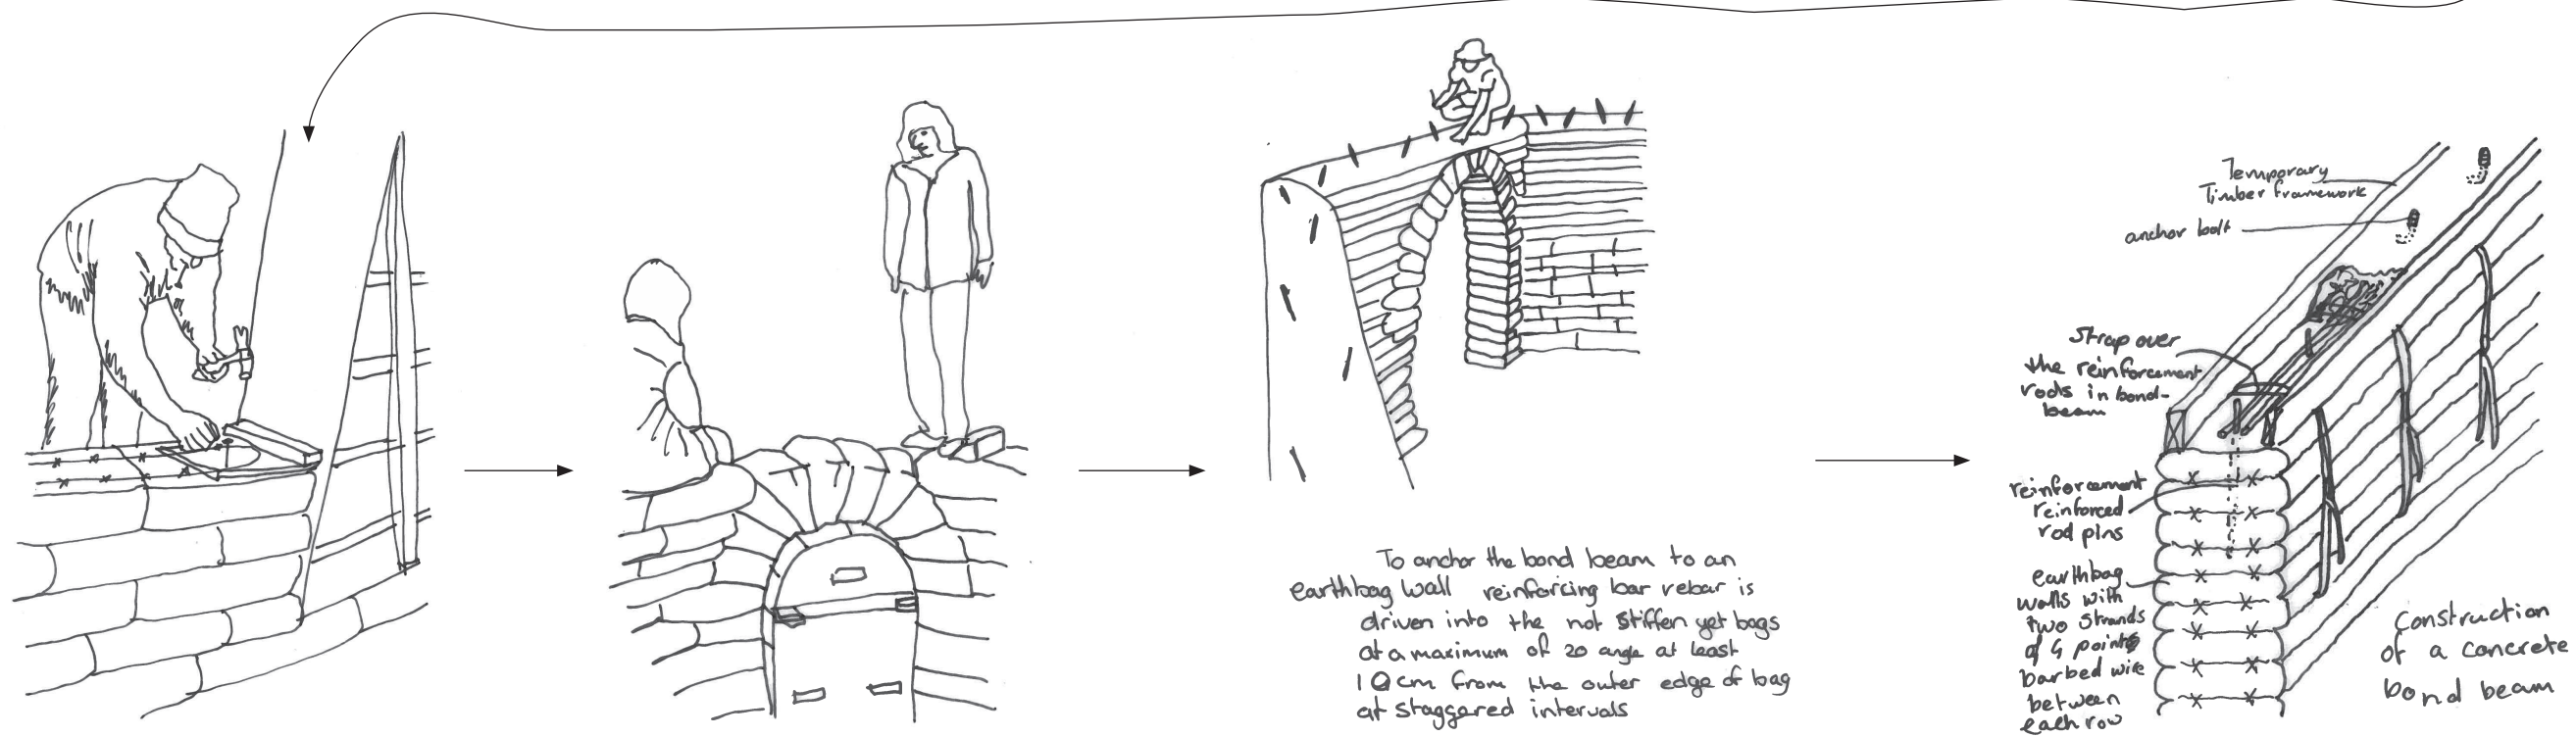 To anchor the bond beam to an
earthbag wall reinforcing bar rebar is
driven into the not stiffen yet bags
at a maximum of 20 angle at least
10cm from the outer edge of bag
at staggered intervals
Temporary
Timber framework
anchor bolt
Strap over
the reinforcement
rods in bond-
beam
reinforcement
reinforced
rod pins
earthbag
walls with
two strands
of 4 points
barbed wire
between
each row
Construction
of a concrete
bond beam